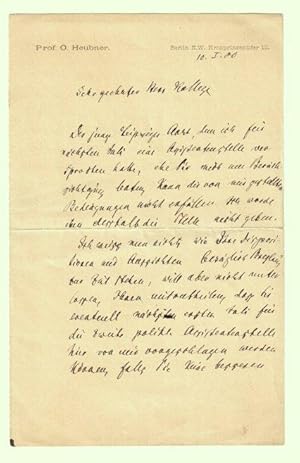 Prof. O. Heubner.
Berlin N.W. Kronprinzenufer 12.
10. I. 00
Sehr geehrter Herr Kollege
Der junge Leipziger Arzt, dem ich für
nächsten Juli eine Assistentenstelle ver
sprochen hatte, ehe Sie mich um Berück
sichtigung baten, kann die von mir gestellten
Bedingungen nicht erfüllen. Ich werde
ihm deshalb die Stelle nicht geben.
Ich weiss nun nicht, wie Ihre Dispositi
onen und Aussichten bezüglich
stehen, will aber nicht unter
lassen, Ihnen mitzutheilen, dass Sie
eventuell nächsten ersten Juli für
die zweite poliklin. Assistentenstelle
hier von mir vorgeschlagen werden
können, falls Sie keine bessere